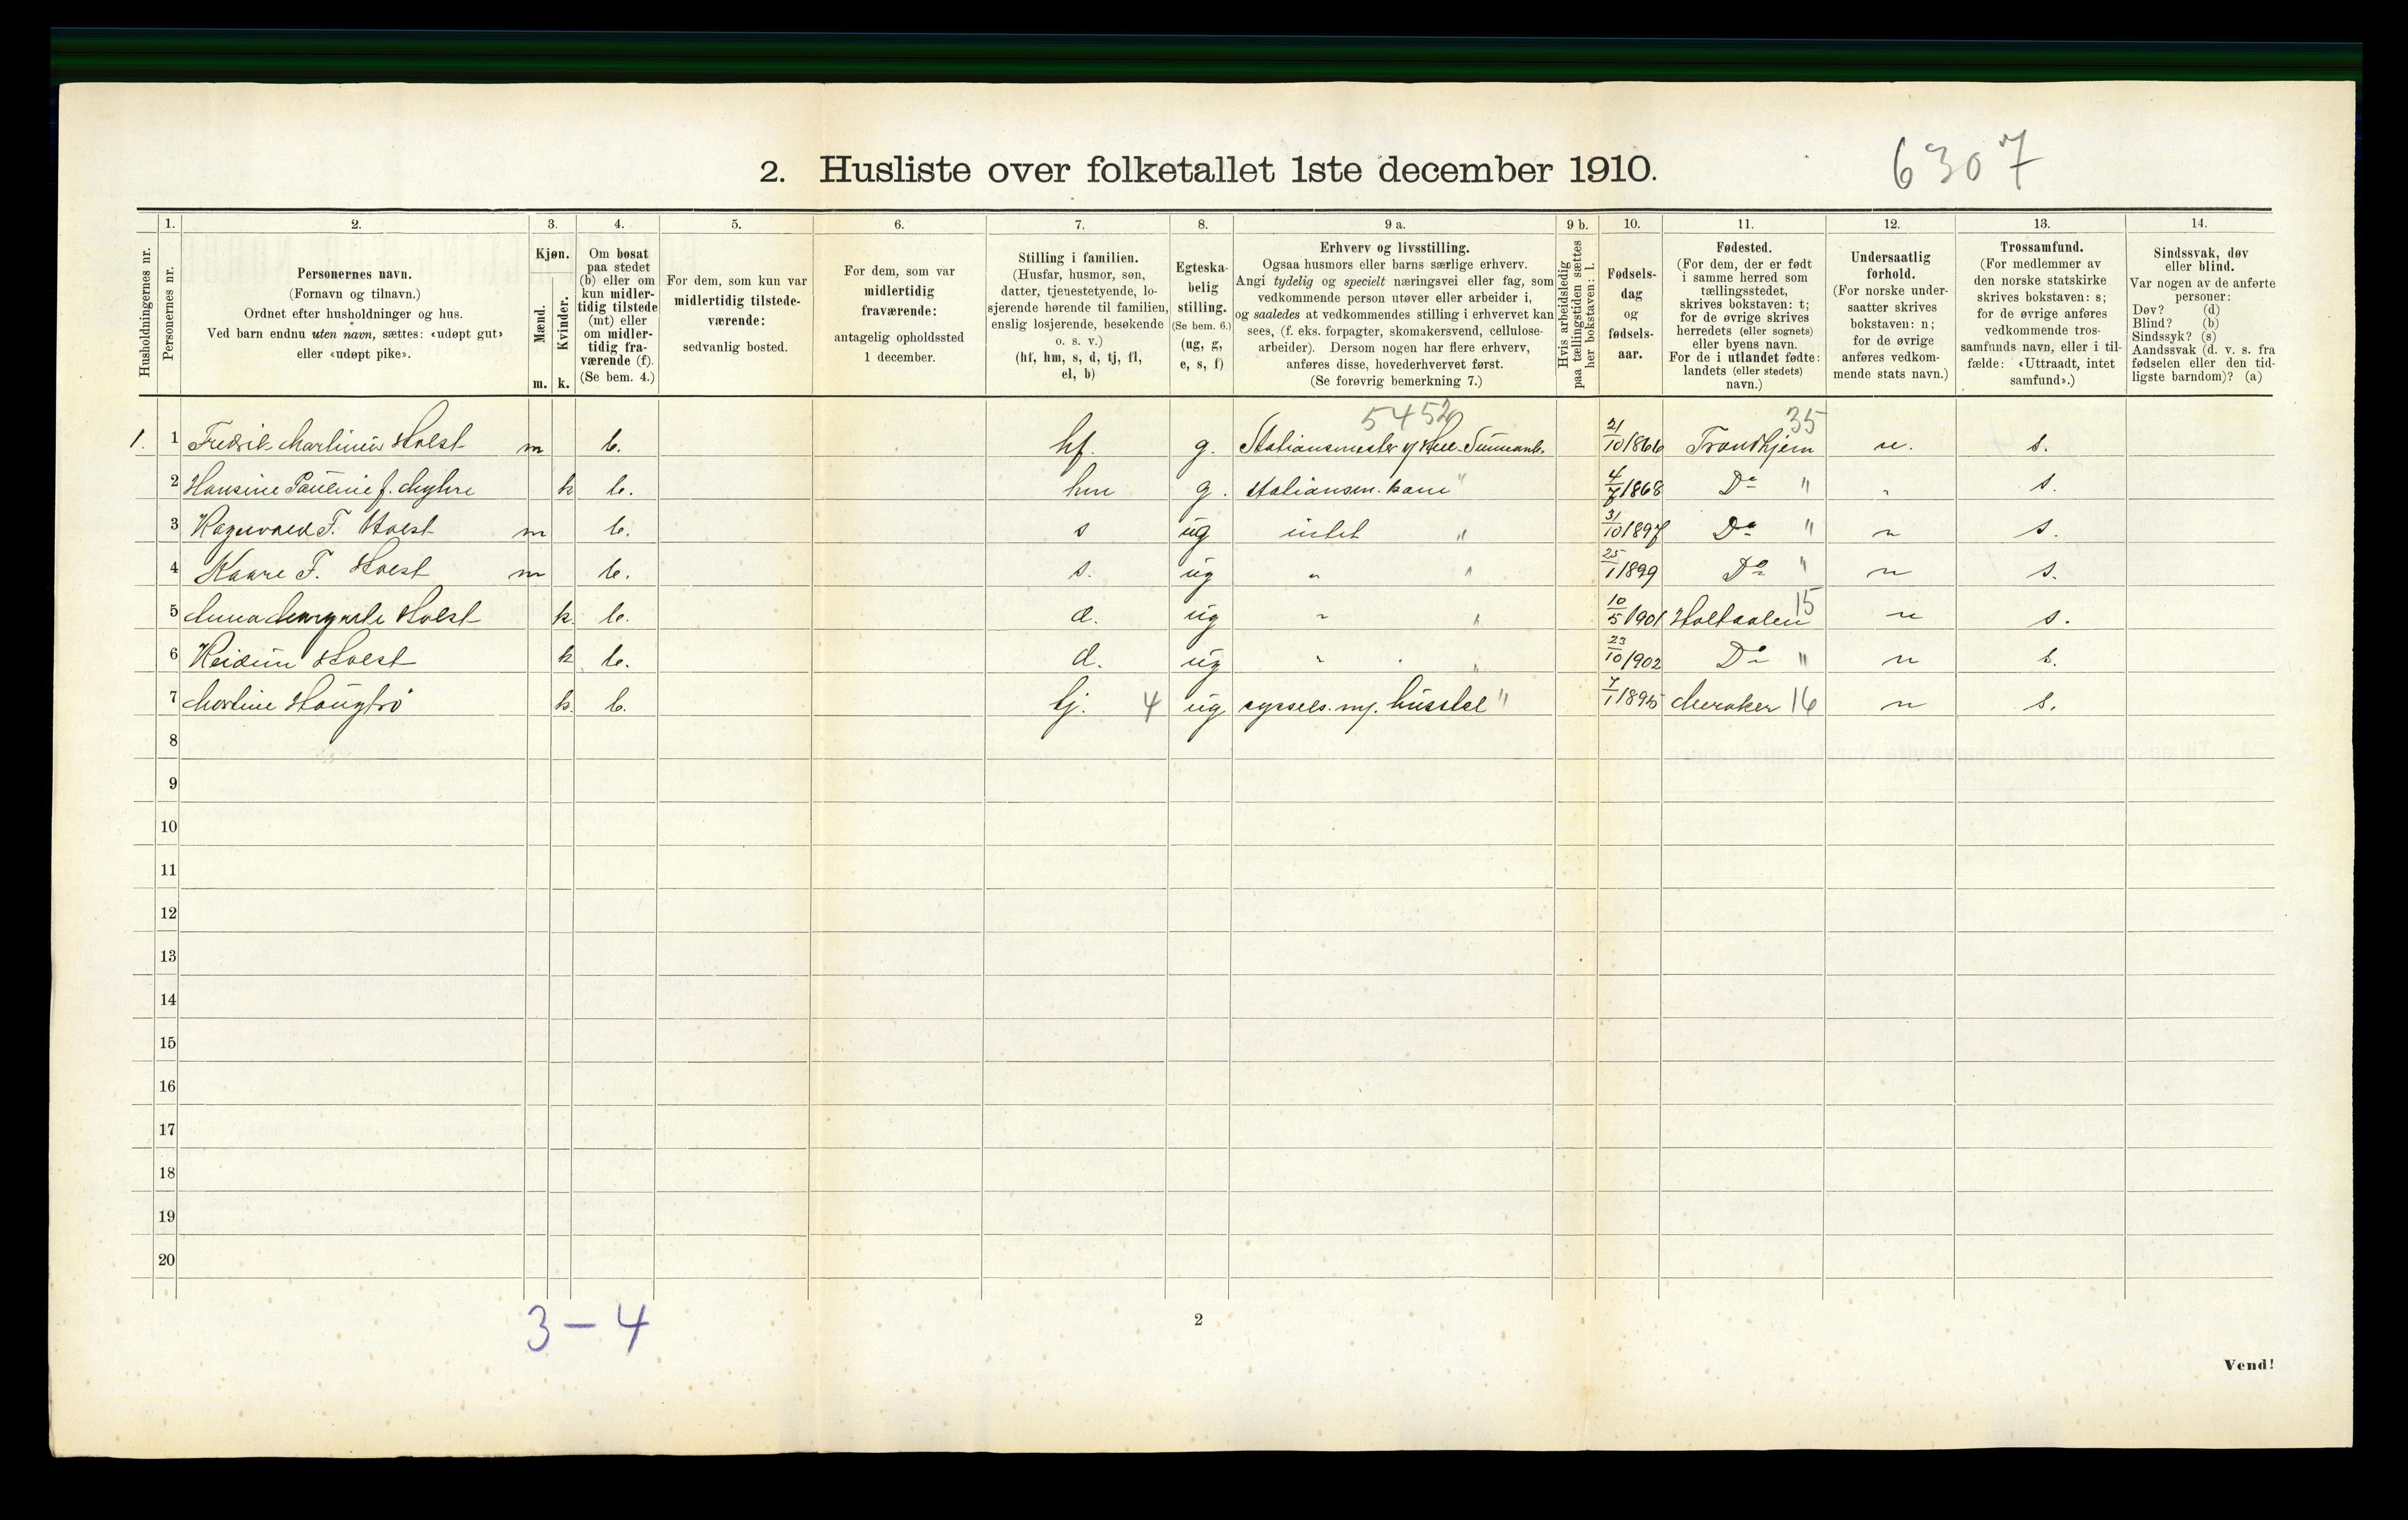 2. Husliste over folketallet 1ste december 1910.
6307
Husholdningernes nr.
1.
Personernes nr.
2.
Personernes navn.
(Fornavn og tilnavn.)
Ordnet efter husholdninger og hus.
Ved barn endnu uten navn, sættes: «udøpt gut»
eller «udøpt pike».
3.
Kjøn.
Mænd.
m.
Kvinder.
k.
4.
Om bosat
paa stedet
(b) eller om
kun midler-
tidig tilstede
(mt) eller
om midler-
tidig fra-
værende (f).
(Se bem. 4.)
5.
For dem, som kun var
midlertidig tilstede-
værende:
sedvanlig bosted.
6.
For dem, som var
midlertidig
fraværende:
antagelig opholdssted
1 december.
7.
Stilling i familien.
(Husfar, husmor, søn,
datter, tjenestetyende, lo-
sjerende hørende til familien,
enslig losjerende, besøkende
o. s. v.)
(hf, hm, s, d, tj, fl,
el, b)
8.
Egteska-
belig
stilling.
(Se bem. 6.)
(ug, g,
e, s, f)
9 a.
Erhverv og livsstilling.
Ogsaa husmors eller barns særlige erhverv.
Angi tydelig og specielt næringsvei eller fag, som
vedkommende person utøver eller arbeider i,
og saaledes at vedkommendes stilling i erhvervet kan
sees, (f. eks. forpagter, skomakersvend, cellulose-
arbeider). Dersom nogen har flere erhverv,
anføres disse, hovederhvervet først.
(Se forøvrig bemerkning 7.)
9 b.
Hvis arbeidsledig
paa tællingstiden sættes
her bokstaven: l.
10.
Fødsels-
dag
og
fødsels-
aar.
11.
Fødested.
(For dem, der er født
i samme herred som
tællingsstedet,
skrives bokstaven: t;
for de øvrige skrives
herredets (eller sognets)
eller byens navn.
For de i utlandet fødte:
landets (eller stedets)
navn.)
12.
Undersaatlig
forhold.
(For norske under-
saatter skrives
bokstaven: n;
for de øvrige
anføres vedkom-
mende stats navn.)
13.
Trossamfund.
(For medlemmer av
den norske statskirke
skrives bokstaven: s;
for de øvrige anføres
vedkommende tros-
samfunds navn, eller i til-
fælde: «Uttraadt, intet
samfund».)
14.
Sindssvak, døv
eller blind.
Var nogen av de anførte
personer:
Døv? (d)
Blind? (b)
Sindssyk? (s)
Aandssvak (d. v. s. fra
fødselen eller den tid-
ligste barndom)? (a)
5452 35
1. 1 Fredrik Martinius Holst m b. hf. g. Stationsmester v/ 21/10 1866 Trondhjem n. s.
2 Hansine Pauline f. Myhre k b. hm g. stationsm. kone " 4/7 1868 Do " " s.
3 Ragnvald F. Holst m b. s ug intet " 31/10 1897 Do " n s.
4 Kaare F. Holst m b. s. ug " " 25/1 1899 Do " n s.
5 Anna Margrete Holst k. b. d. ug " " 10/5 1901 Holtaalen 15 n s.
6 Reidun Holst k b. d. ug " " 23/10 1902 Do " n s.
7 Martine Haugbrö k. b. tj. 4 ug syssels. m. husstel " 7/1 1895 Meraker 16 n s.
8
9
10
11
12
13
14
15
16
17
18
19
20
3 – 4
2
Vend!